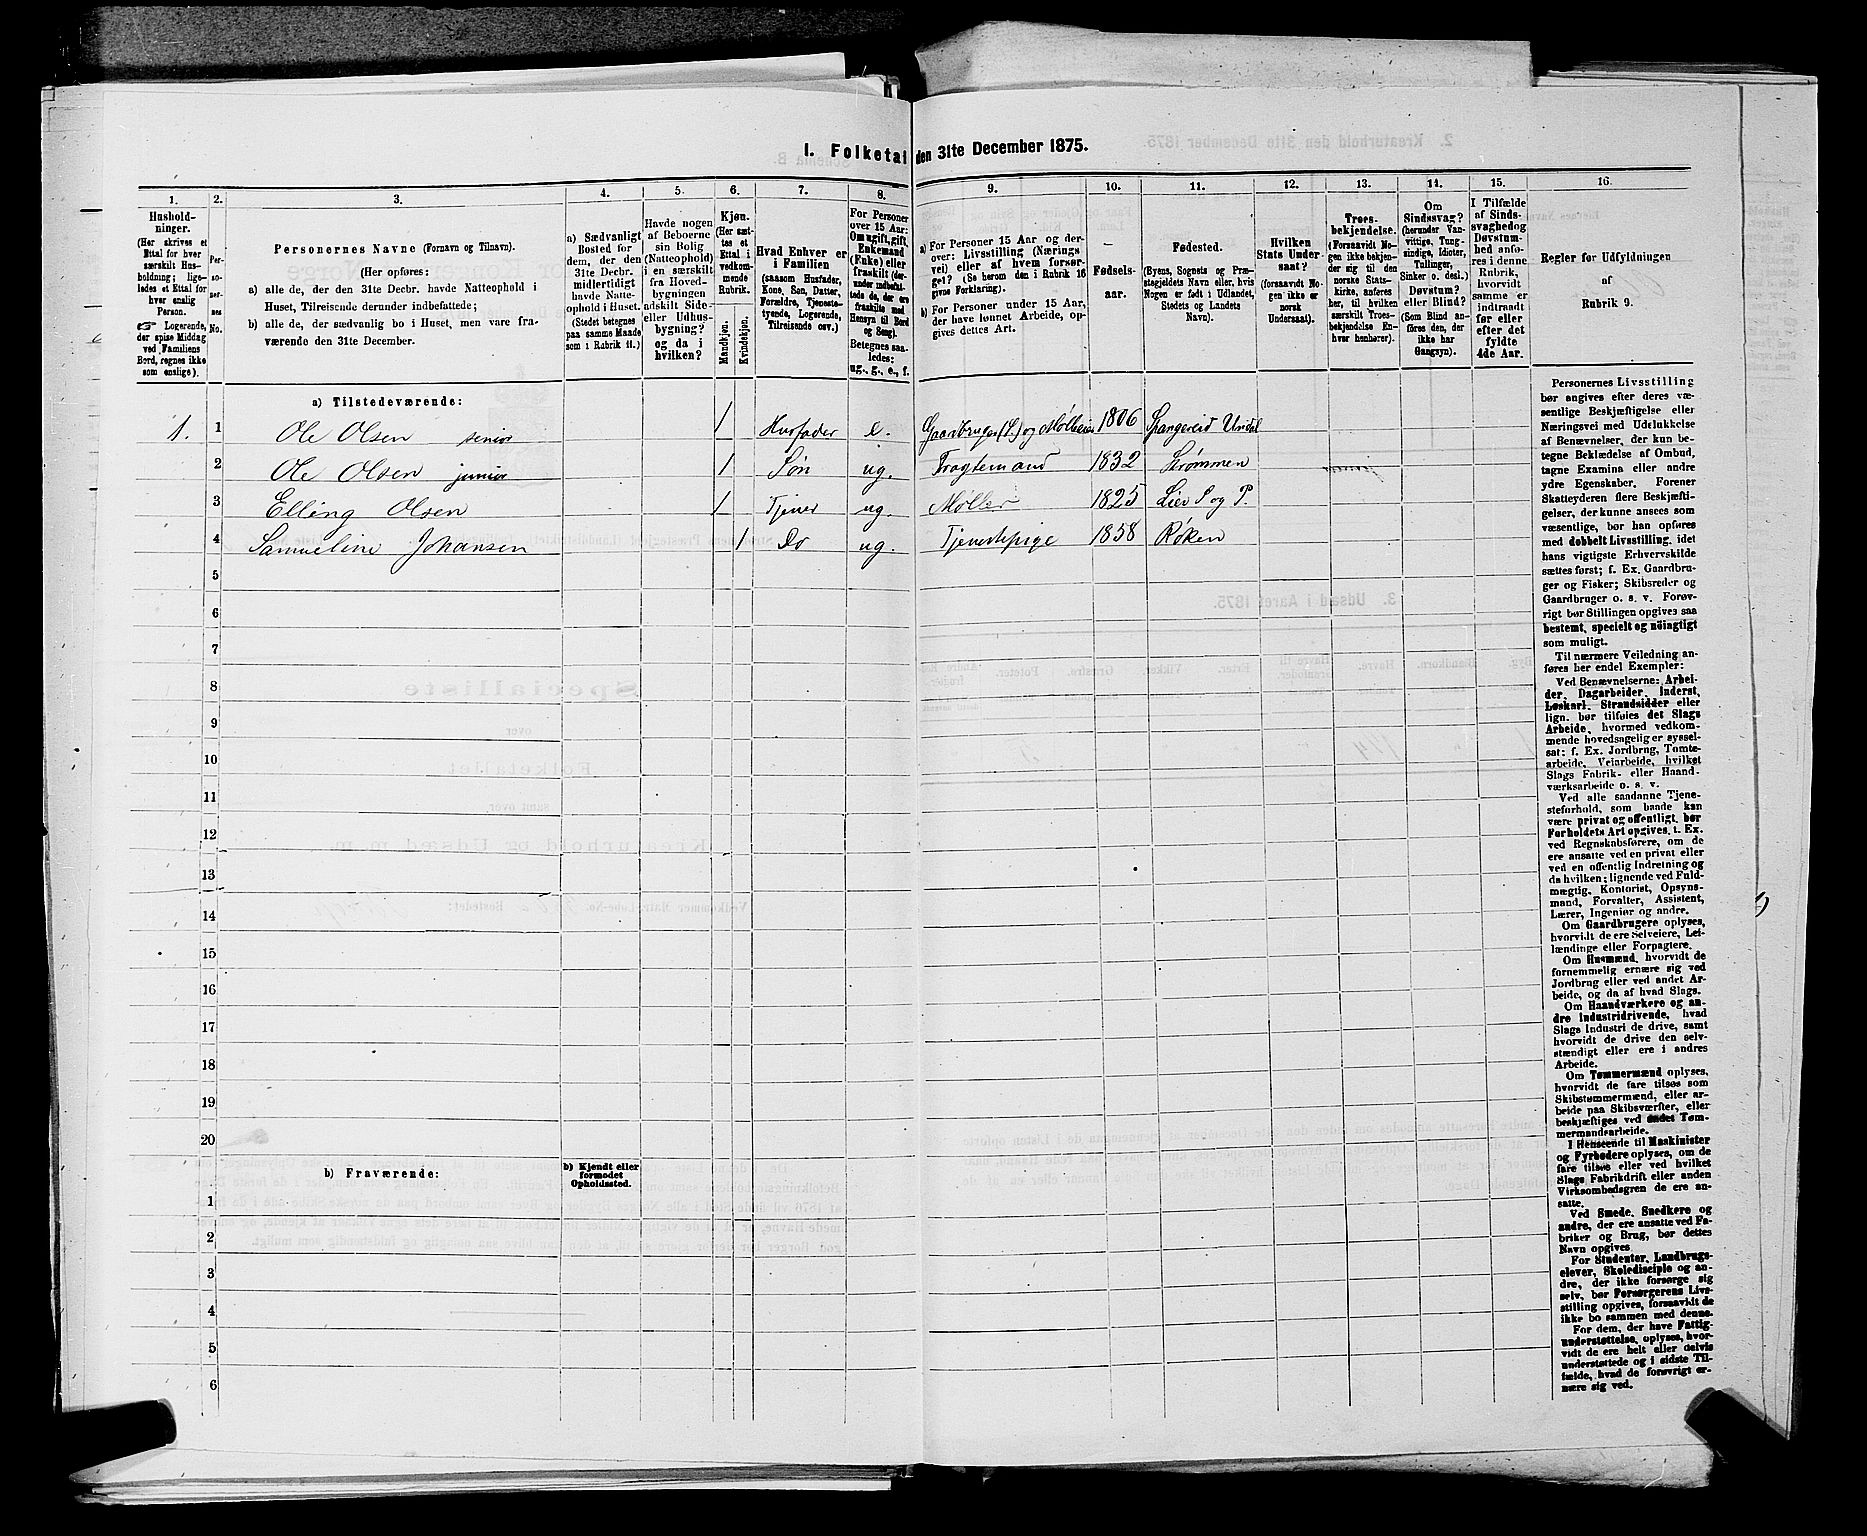 I. Folketal den 31te December 1875.
1. 2. 3. 4. 5. 6. 7. 8. 9. 10. 11. 12. 13. 14. 15. 16.
Hushold-
ninger.
(Her skrives et
Ettal for hver
særskilt Hus-
holdning; lige-
ledes et Ettal for
hver enslig
Person.
☞ Logerende,
der spise Middag
ved Familiens
Bord, regnes ikke
som enslige).
Per-
so-
ner-
nes
No.
Personernes Navne (Fornavn og Tilnavn).
(Her opføres:
a) alle de, der den 31te Decbr. havde Natteophold i
Huset, Tilreisende derunder indbefattede;
b) alle de, der sædvanlig bo i Huset, men vare fra-
værende den 31te December.
a) Sædvanligt
Bosted for
dem, der den
31te Decbr.
midlertidigt
havde Natte-
ophold i Huset.
(Stedet betegnes
paa samme Maade
som i Rubrik 11.)
Havde nogen
af Beboerne
sin Bolig
(Natteophold)
i en særskilt
fra Hoved-
bygningen
adskilt Side-
eller Udhus-
bygning?
og da i
hvilken?
Kjøn.
(Her sæt-
tes et
Ettal i
vedkom-
mende
Rubrik.
Mandkjøn.
Kvindekjøn.
Hvad Enhver er
i Familien
(saasom Husfader,
Kone, Søn, Datter,
Forældre, Tjeneste-
tyende, Logerende,
Tilreisende osv.)
For Personer
over 15 Aar:
Om ugift, gift,
Enkemand
(Enke) eller
fraskilt (der-
under indbefat-
tede de, der ere
fraskilte med
Hensyn til Bord
og Seng).
Betegnes saa-
ledes:
ug., g., e., f.
a) For Personer 15 Aar og der-
over: Livsstilling (Nærings-
vei) eller af hvem forsør-
get? (Se herom den i Rubrik 16
givne Forklaring).
b) For Personer under 15 Aar,
der have lønnet Arbeide, op-
gives dettes Art.
Fødsels-
aar.
Fødested.
(Byens, Sognets og Præ-
stegjeldets Navn eller, hvis
Nogen er født i Udlandet,
Stedets og Landets
Navn).
Hvilken
Stats Under-
saat?
(forsaavidt No-
gen ikke er
norsk
Undersaat).
Troes-
bekjendelse.
(Forsaavidt No-
gen ikke bekjen-
der sig til den
norske Stats-
kirke, anføres
her, til hvilken
særskilt Troes-
bekjendelse En-
hver henhører).
Om
Sindssvag?
(herunder Van-
vittige, Tung-
sindige, Idioter,
Tullinger,
Sinker o. desl.)
Døvstum?
eller Blind?
(Som Blind an-
føres den, der
ikke har
Gangsyn).
I Tilfælde
af Sinds-
svaghed og
Døvstum-
hed, anfø-
res i denne
Rubrik,
hvorvidt
samme er
indtraadt
før eller
efter det
fyldte
4de Aar.
Regler for Udfyldningen
af
Rubrik 9.
a) Tilstedeværende:
1. 1 Ole Olsen senior 1 Husfader e. Gaardbruger (S.) og Mølleeier 1806 Spangereid Undal
2 Ole Olsen junior 1 Søn ug. Fragtemand 1832 Strømmen
3 Elling Olsen 1 Tjener ug. Møller 1825 Lier S og P.
4 Samueline Johansen 1 Do ug. Tjenestepige 1858 Røken
5
6
7
8
9
10
11
12
13
14
15
16
17
18
19
20
b) Fraværende:
b) Kjendt eller
formodet
Opholdssted.
1
2
3
4
5
6
Personernes Livsstilling
bør angives efter deres væ-
sentlige Beskjæftigelse eller
Næringsvei med Udelukkelse
af Benævnelser, der kun be-
tegne Beklædelse af Ombud,
tagne Examina eller andre
ydre Egenskaber. Forener
Skatteyderen flere Beskjæfti-
gelser, der kunne ansees som
væsentlige, bør han opføres
med dobbelt Livsstilling, idet
hans vigtigste Erhvervskilde
sættes først; f. Ex. Gaardbru-
ger og Fisker; Skibsreder og
Gaardbruger o. s. v. Forøv-
rigt bør Stillingen opgives saa
bestemt, specielt og nöiagtigt
som muligt.
Til nærmere Veiledning an-
føres her endel Exempler:
Ved Benævnelserne: Arbei-
der, Dagarbeider, Inderst,
Løskarl, Strandsidder eller
lign. bør tilføies det Slags
Arbeide, hvormed vedkom-
mende hovedsagelig er syssel-
sat; f. Ex. Jordbrug, Tomte-
arbeide, Veiarbeide, hvilket
Slags Fabrik- eller Haand-
værksarbeide o. s. v.
Ved alle saadanne Tjene-
steforhold, som baade kan
være privat og offentligt, bør
Forholdets Art opgives, f. Ex.
ved Regnskabsførere, om de
ere ansatte ved en privat eller
ved en offentlig Indretning og
da hvilken; lignende ved Fuld-
mægtig, Kontorist, Opsyns-
mand, Forvalter, Assistent,
Lærer, Ingeniør og andre.
Om Gaardbrugere oplyses,
hvorvidt de ere Selveiere, Lei-
lændinge eller Forpagtere.
Om Husmænd, hvorvidt de
fornemmelig ernære sig ved
Jordbrug eller ved andet Ar-
beide, og da af hvad Slags.
Om Haandværkere og an-
dre Industridrivende, hvad
Slags Industri de drive, samt
hvorvidt de drive den selv-
stændigt eller ere i andres
Arbeide.
Om Tømmermænd oplyses,
hvorvidt de fare tilsøs som
Skibstømmermænd, eller ar-
beide paa Skibsværfter, eller
beskjæftiges ved andet Tøm-
mermandsarbeide.
I Henseende til Maskinister
og Fyrbødere oplyses, om de
fare tilsøs eller ved hvilket
Slags Fabrikdrift eller anden
Virksomhedsgren de ere an-
satte.
Ved Smede, Snedkere og
andre, der ere ansatte ved Fa-
briker og Brug, bør dettes
Navn opgives
For Studenter, Landbrugs-
elever, Skoledisciple og an-
dre, der ikke forsørge sig
selv, bør Forsørgerens Livs-
stilling opgives, forsaavidt de
ikke bo sammen med denne.
For dem, der have Fattig-
understøttelse, oplyses, hvor-
vidt de ere helt eller delvis
understøttede og i sidste Til-
fælde, hvad de forøvrigt er-
nære sig ved.